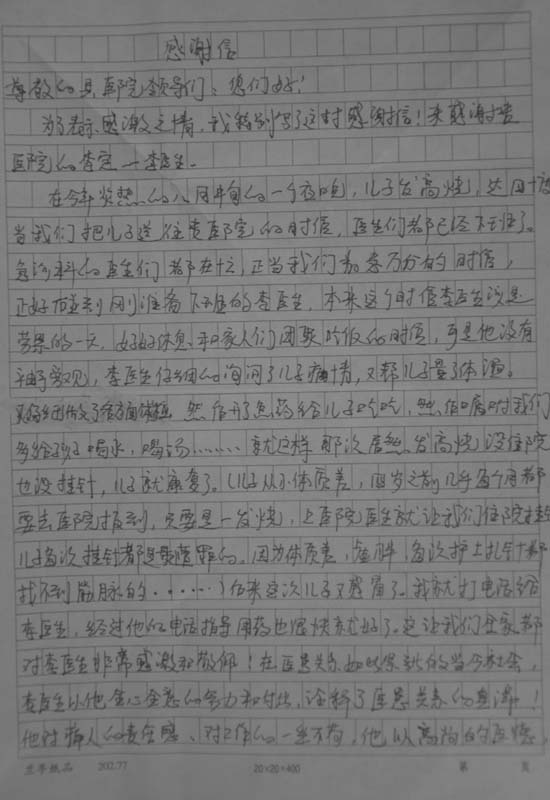 感谢信
尊敬的县医院领导们：您们好！
为了表示感激之情，我特别写了这封感谢信！来感谢贵
医院的 李医生。
在今年炎热的八月中旬的一个夜晚，儿子发高烧，达四十度
当我们把儿子送往贵医院的时候，医生们都已经下班了。
急诊科的医生们都在忙，正当我们万分的时候，
正好碰到刚准备下班的李医生，本来这个时候李医生该是
劳累的一天，好好休息和家人们团聚吃饭的时候，可是他没有
袖手旁观，李医生仔细的询问了儿子病情，又帮儿子量了体温。
又仔细做了各方面体检 然后开了点药给儿子吃吃，然后嘱咐我们
多给孩子喝水，喝汤……… 就这样 那次居然发高烧没住院
也没挂针，儿子就康复了。（儿子从小体质差，四岁之前几乎每个月都
要去医院报到，只要是一发烧，上医院医生就让我们住院挂针
儿子每次挂针都是的。因为体质差，虚胖，每次护士扎针都
找不到筋脉的……）后来这次儿子又感冒了。我就打电话给
李医生，经过他的电话指导用药也很快就好了。这让我们全家都
对李医生非常感激和敬仰！在医患关系如此紧张的当今社会，
李医生以他全心全意的努力和付出，诠释了医患关系的真谛！
他对病人的责任感、对工作的一丝不苟，他以高尚的医德，
兰亭纸品 202.77 20×20=400 第 页